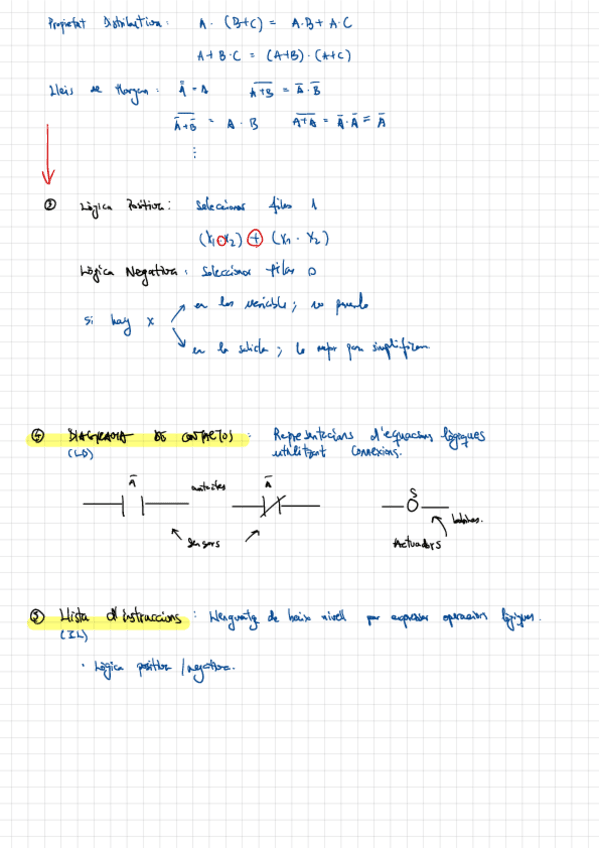 Propietat Distributiva: A · (B+C) = A·B + A·C
A + B·C = (A+B) · (A+C)
Lleis de Morgan: A̿ = A  \overline{A+B} = A̅ · B̅
\overline{A̅+B̅} = A · B  \overline{A+A} = A̅ · A̅ = A̅
⋮
③ Lògica Positiva: Seleccionar files 1
(X₁·X₂) + (X₁ · X₂)
Lògica Negativa: Seleccionar files 0
en las variable; no puedo
si hay x
en la salida; lo mejor para simplificar
④ DIAGRAMA DE CONTACTOS: Representacions d'equacions lògiques
(LD) utilitzant connexions.
A̅ A̅ S
bobinas.
Sensors Actuadors
⑤ Llista d'instruccions: Llenguatge de baix nivell per expressar operacions lògiques.
(IL)
· Lògica positiva / negativa.